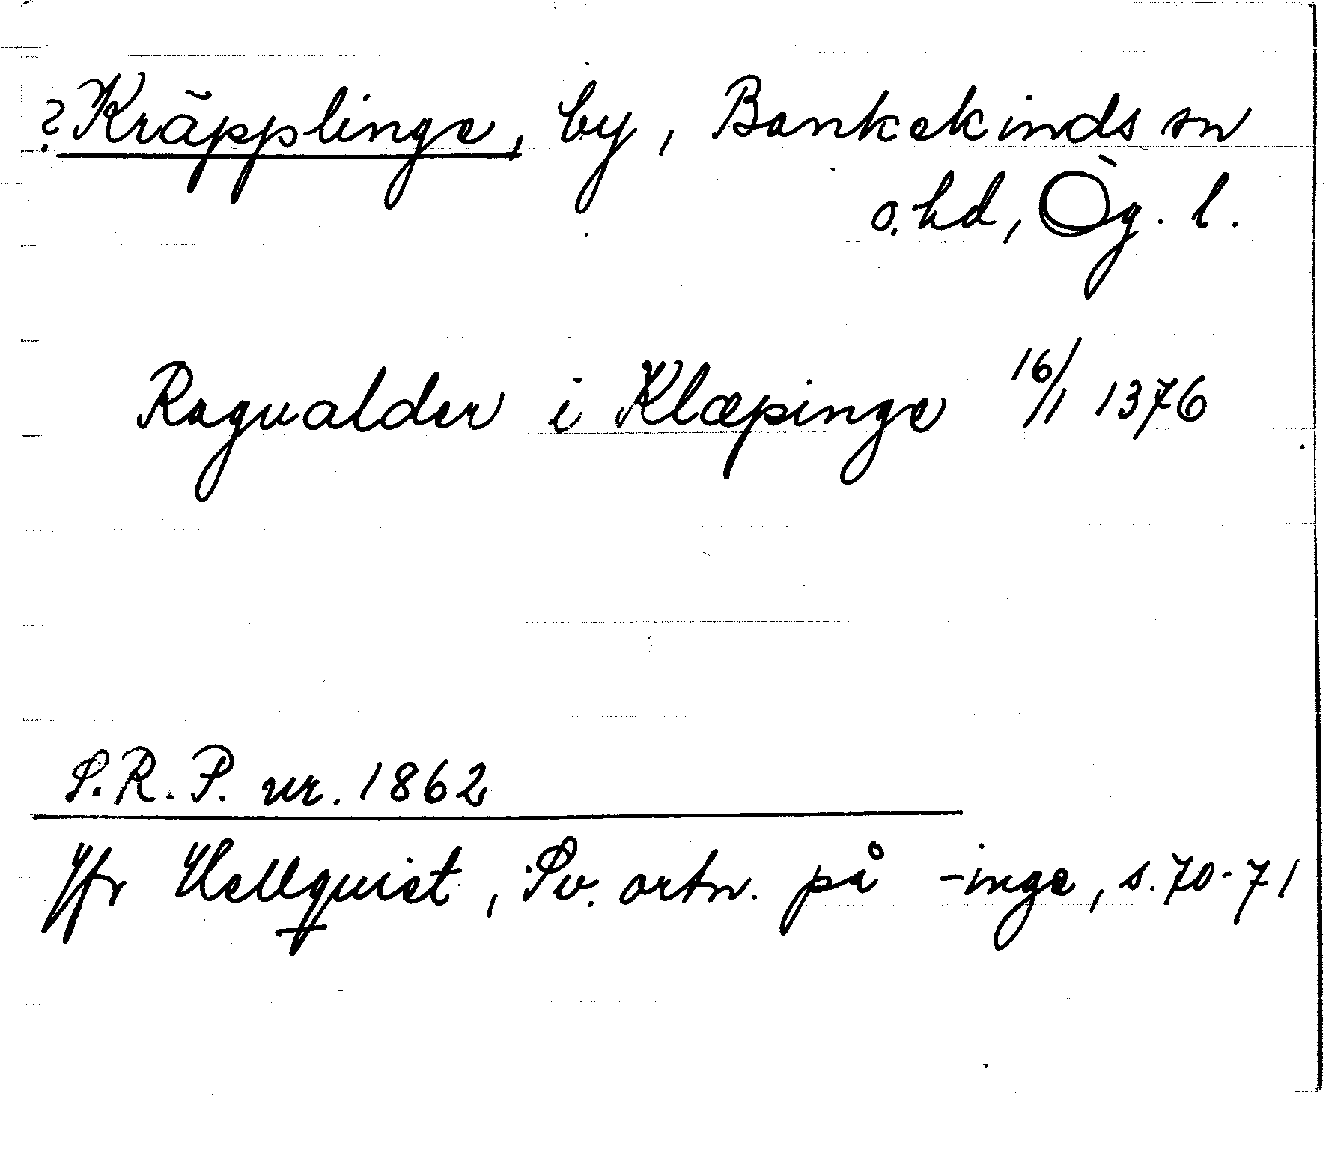 ? Kräpplinge, by, Bankekinds sn
o. hd, Ög. l.
Ragualder i Klæpinge 16/1 1376
S.R.P. nr. 1862
Jfr Hellquist, Sv. ortn. på -inge, s. 70-71